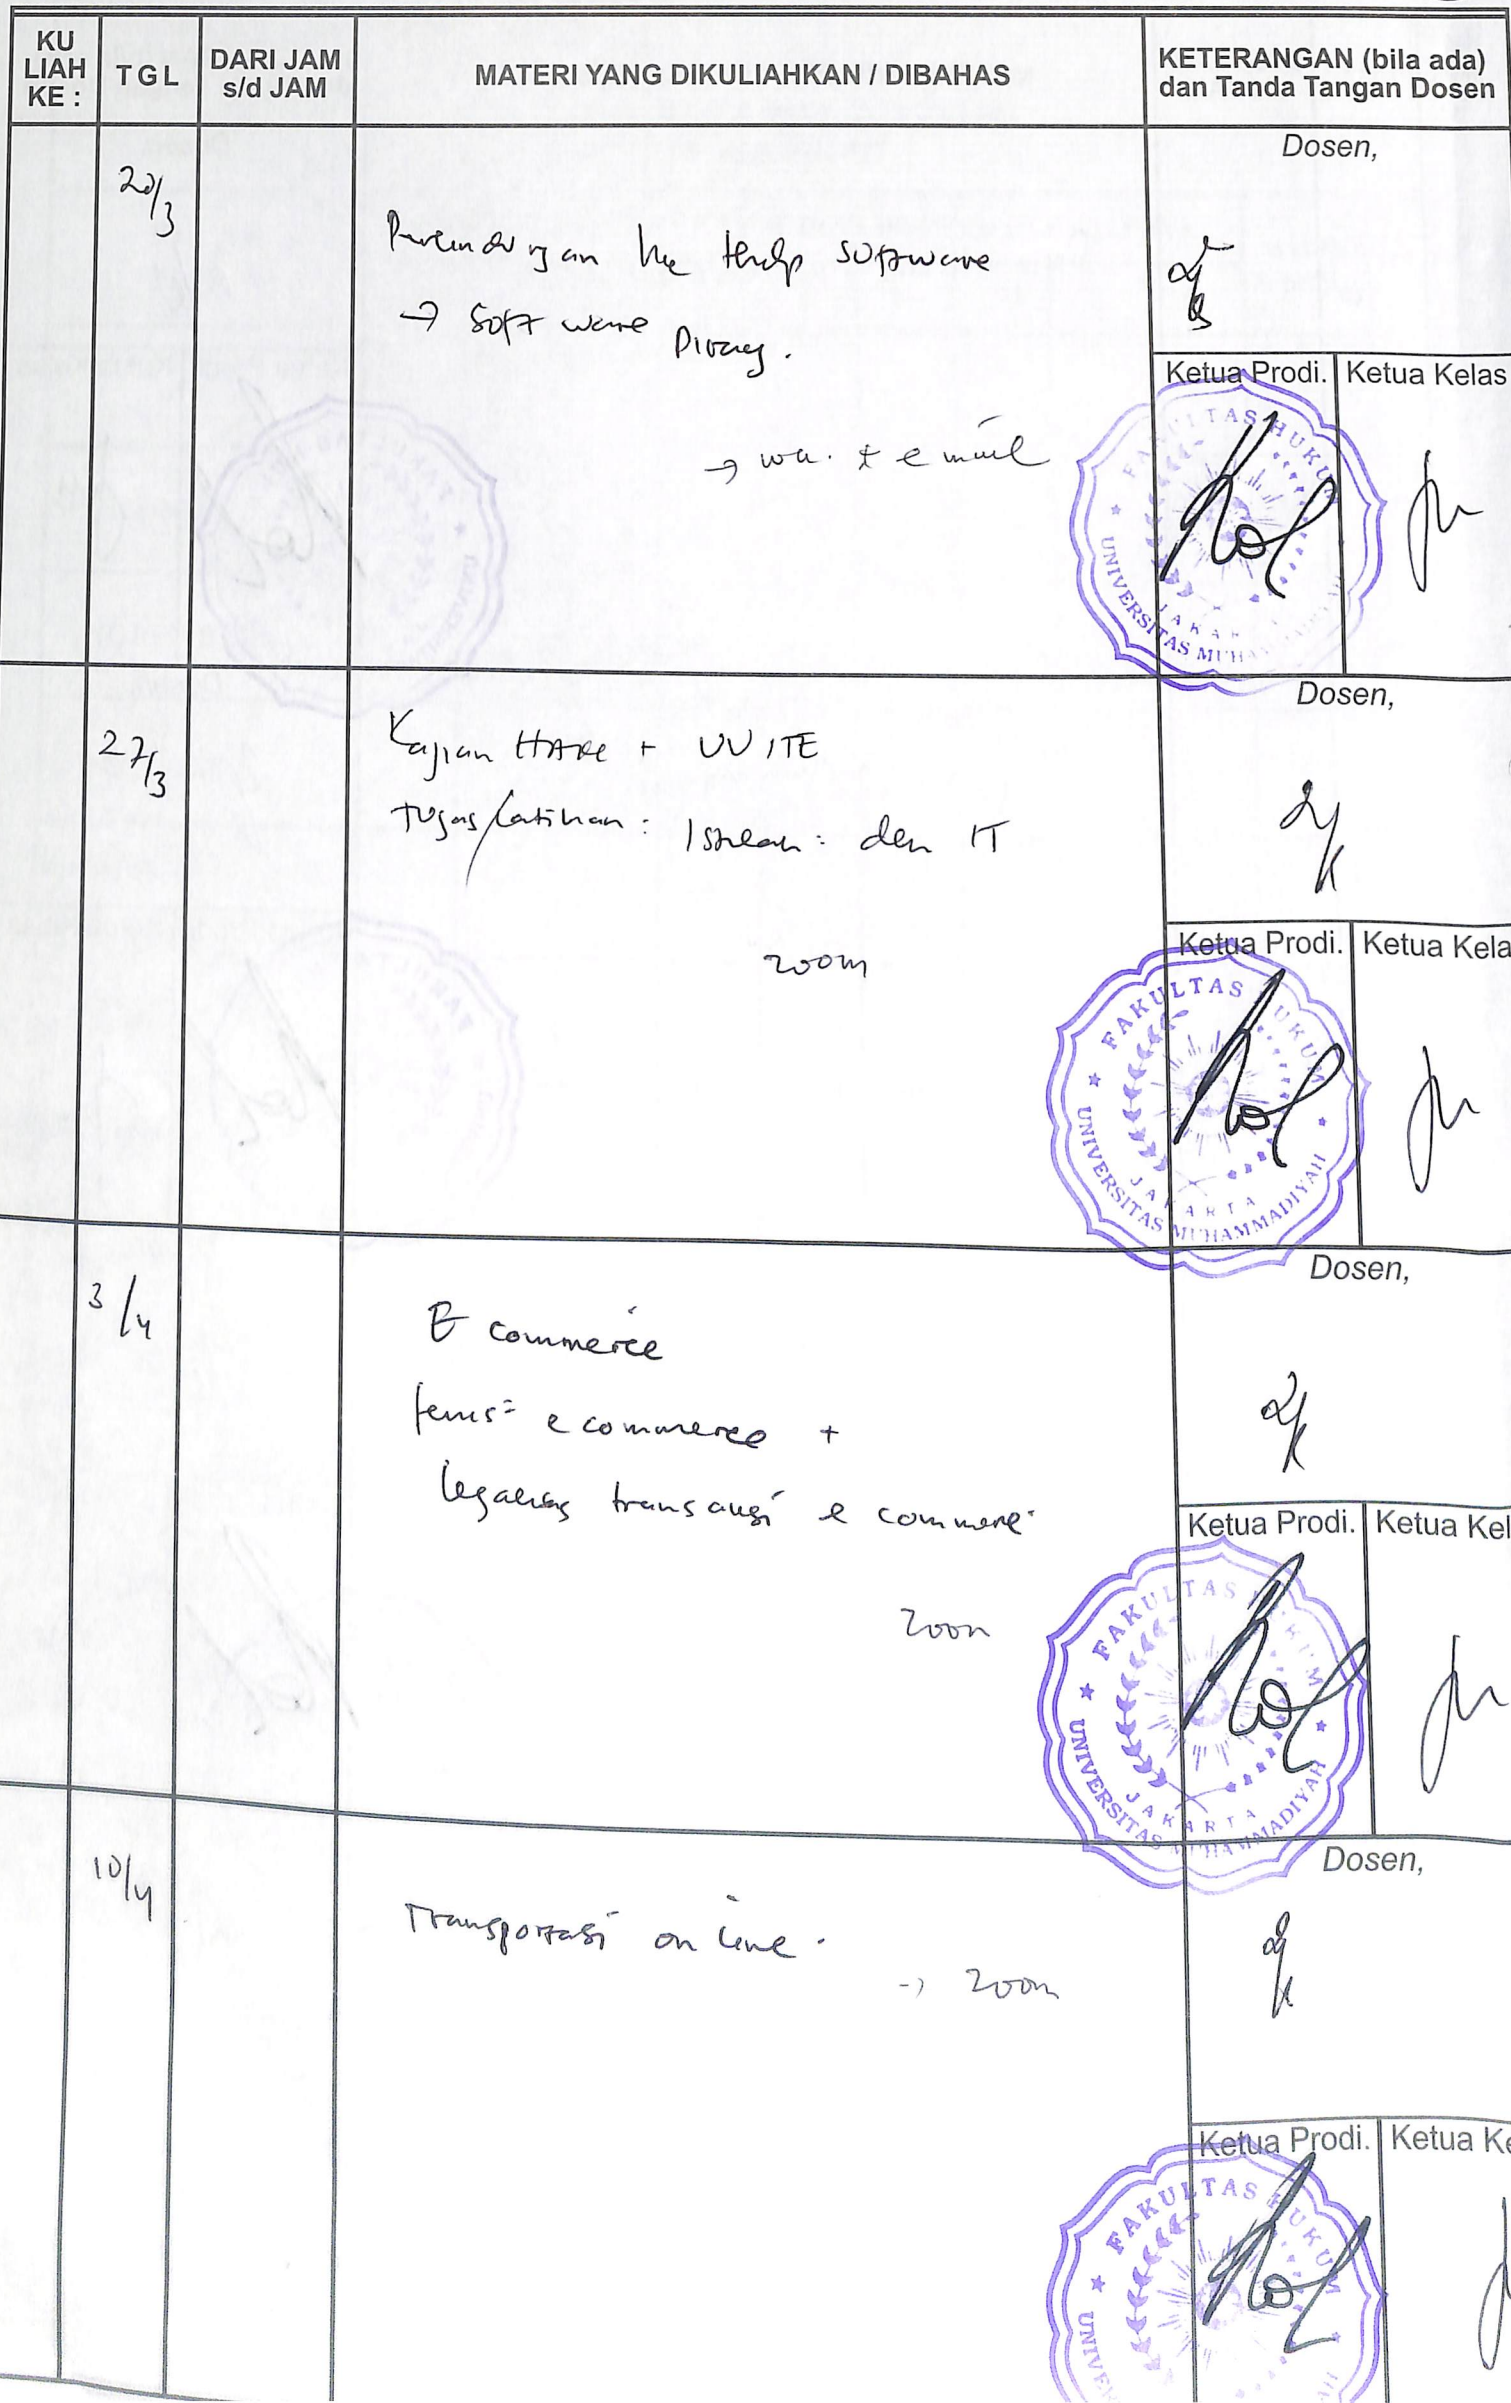 KU LIAH KE :
TGL
DARI JAM s/d JAM
MATERI YANG DIKULIAHKAN / DIBAHAS
KETERANGAN (bila ada) dan Tanda Tangan Dosen
20/3
software
→ Software
→ wa. + email
Dosen,
Ketua Prodi. Ketua Kelas
FAKULTAS HUKUM
UNIVERSITAS MUH
JAKAR
27/3
Kajian HAKI + UU ITE
Tugas/Latihan: Istilah= dlm IT
zoom
Dosen,
Ketua Prodi. Ketua Kela
FAKULTAS HUKUM
UNIVERSITAS MUHAMMADIYAH
JAKARTA
3/4
E commerce
Jenis= e commerce +
legalitas transaksi e commerc
zoom
Dosen,
Ketua Prodi. Ketua Kel
FAKULTAS HUKUM
UNIVERSITAS MUHAMMADIYAH
JAKARTA
10/4
Transportasi on line.
→ zoom
Dosen,
Ketua Prodi. Ketua Ke
FAKULTAS HUKUM
UNIVER